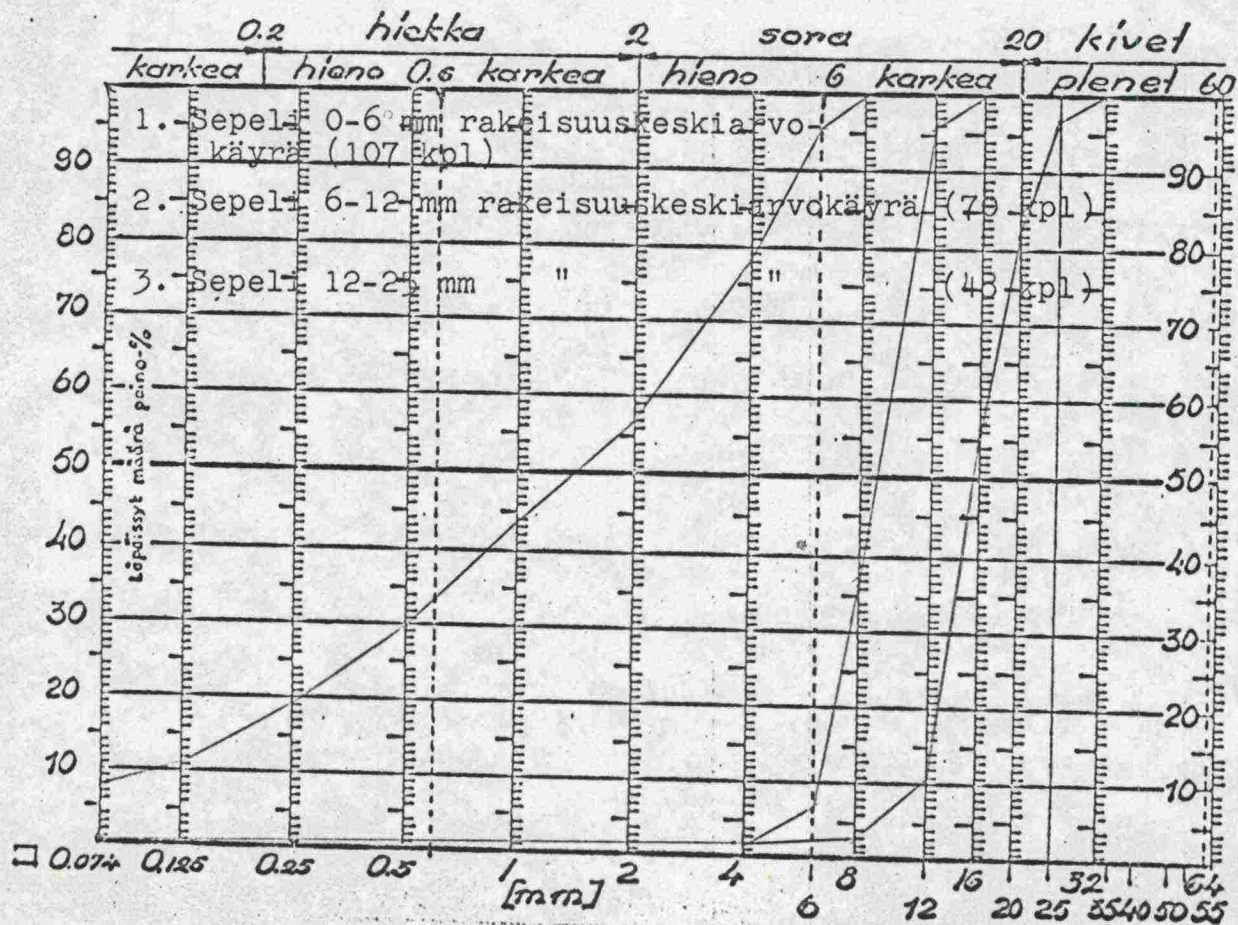 0.2 hiekka 2 sora 20 kivet
karkea hieno 0.6 karkea hieno 6 karkea pienet 60
1. Sepeli 0-6 mm rakeisuuskeskiarvo-
käyrä (107 kpl)
2. Sepeli 6-12 mm rakeisuuskeskiarvokäyrä (70 kpl)
3. Sepeli 12-25 mm " " (48 kpl)
Läpäissyt määrä paino-%
90
80
70
60
50
40
30
20
10
90
80
70
60
50
40
30
20
10
0.074 0.125 0.25 0.5 1 2 4 8 16 32 64
[mm] 6 12 20 25 35 40 50 55